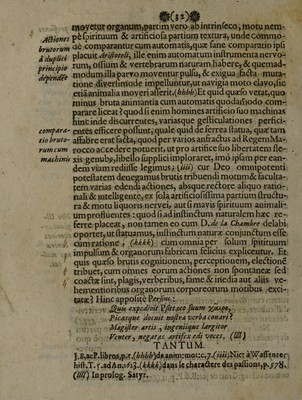 (32)
moventur organum, partim vero ab intrinseco, motu nempe
Actiones
pè spirituum & artificiosa partium textura, unde commo-
brutorum
de comparantur cum automatis, quæ sane comparatio ipsi
à duplici
placuit Aristoteli, ille enim automatum instrumenta nervo-
principio
rum, ossium & vertebrarum naturam habere, & quemad-
dependēt
modum illa parvo moventur pulsu, & exigua facta muta-
tione diversimode impelluntur, ut navigia motu clavo, sic
etiā animalia moveri allevit. (hhhh) Et quid quæso vetat, quo
minus bruta animantia cum automatis quodammodo com-
parare liceat? quod si enim homines artificio suo machinas
hinc inde discurrentes, variasque gesticulationes perfici-
compara-
entes efficere possint, quale quid de ferrea statua, quæ tam
tio bruto-
affabre erat facta, quod per varios anfractus ad Regem Ma-
rum cum
rocco accedere potuerit, ut pro artifice suo libertatem fle-
machinis
xis genubus, libello supplici imploraret, imò ipsam per ean-
dem viam rediisse legimus, (iiii) cur Deo omnipotenti
potestatem denegamus brutis tribuendi motum & faculta-
tem varias edendi actiones, absque rectore aliquo ratio-
nali & intelligente, ex sola artificiosissima partium structu-
ra & motu liquoris nervei, aut si mavis spirituum animali-
um profluentes: quod si ad instinctum naturalem hæc re-
ferre placeat, non tamen eo cum D. de la Chambre delabi
oportet, ut statuamus, instinctum naturæ conjunctum esse
cum ratione, (kkkk) cum omnia per solum spirituum
impulsum & organorum fabricam felicius explicentur. Et
quis quæso brutis cognitionem, perceptionem, electionē
tribuet, cum omnes eorum actiones non spontaneæ sed
coactæ sint, plagis, verberibus, fame & inedia aut aliis ve-
hementioribus organorum corporeorum motibus exci-
tatæ? Hinc apposite Persius:
Quis expedivit Psittaco suum χαῖρε,
Picasque docuit nostra verba conari?
Magister artis, ingenîique largitor
Venter, negatas artifex edi voces, (llll)
TANTUM.
(hhhh) de anim: mo: c. 7. (iiii) Nic: à Wassenaer
hist. T. 7. ad An. 1623. (kkkk) dans le charactere des passions, p. 578.
(llll) In prolog. Satyr.